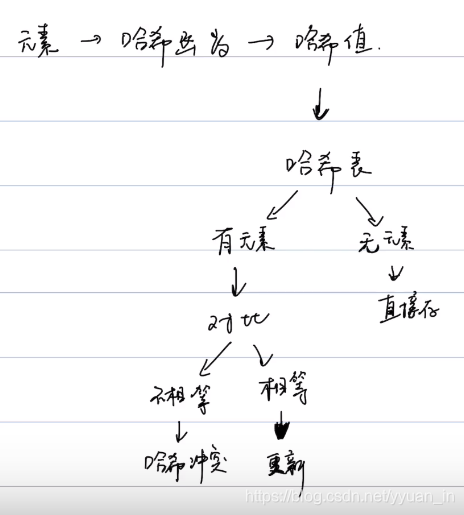 元素 → 哈希函数 → 哈希值.
哈希表
有元素 无元素
对比 直接存
不相等 相等
哈希冲突 更新
https://blog.csdn.net/yyuan_in